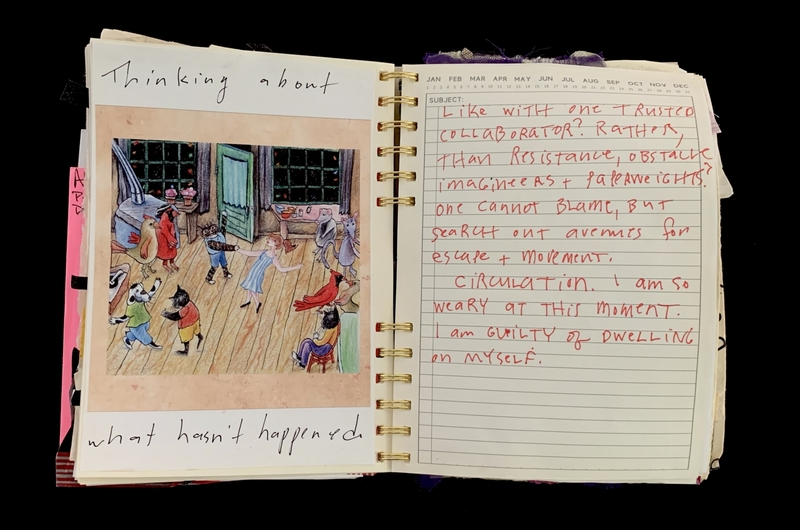 Thinking about
what hasn't happened
JAN FEB MAR APR MAY JUN JUL AUG SEP OCT NOV DEC
SUBJECT:
LIKE WITH ONE TRUSTED
COLLABORATOR? RATHER,
THAN RESISTANCE, OBSTACLE
IMAGINEERS + PAPERWEIGHTS?
ONE CANNOT BLAME, BUT
SEARCH OUT AVENUES FOR
ESCAPE + MOVEMENT.
CIRCULATION. I AM SO
WEARY AT THIS MOMENT.
I AM GUILTY OF DWELLING
ON MYSELF.
A
P
D